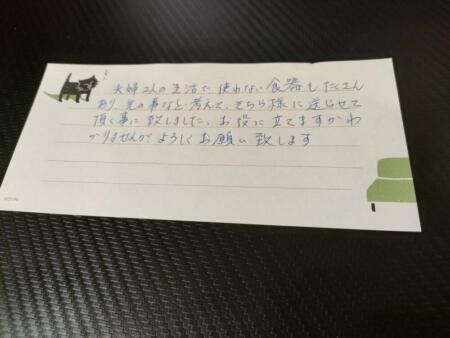 夫婦2人の生活で使わない食器もたくさん
あり、先の事など考えて、そちら様に送らせて
頂く事に致しました。お役に立てますかわ
かりませんが、よろしくお願い致します